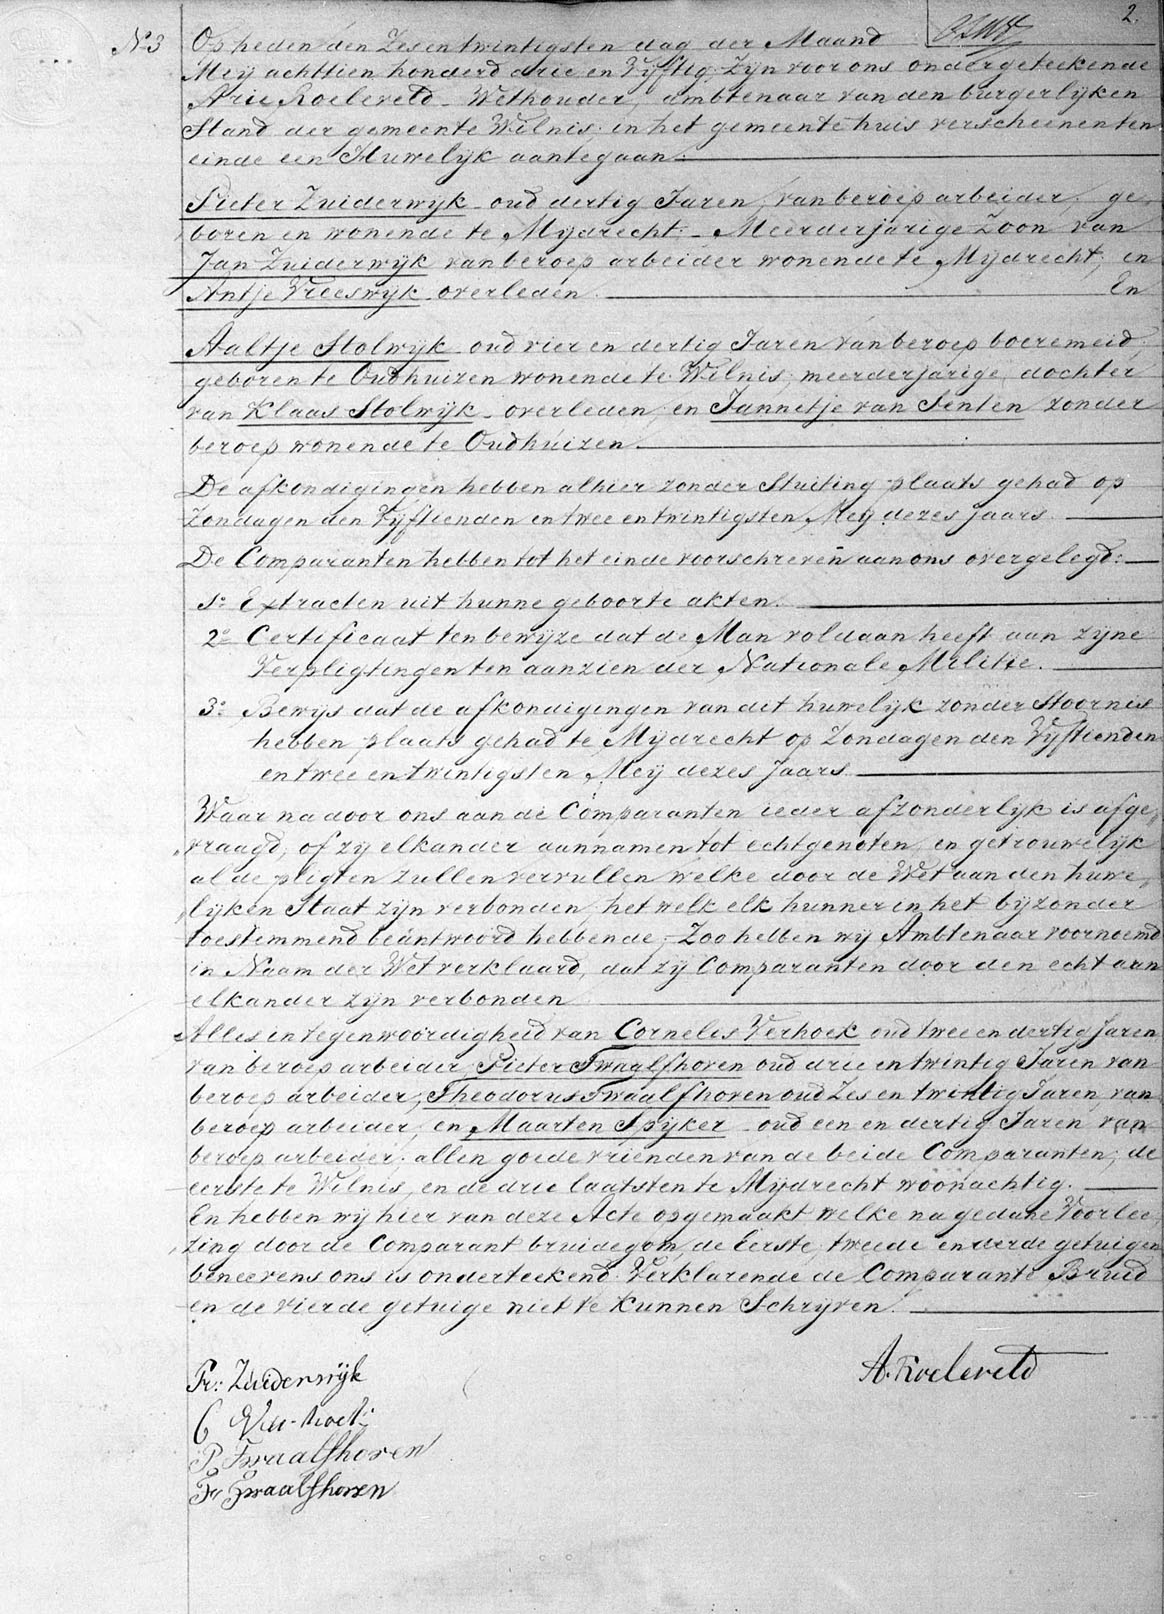 2.
N:3 Op heden den Zesentwintigsten dag der Maand
Meij achttien honderd drie en Vijftig, Zijn voor ons ondergeteekende
Arie Roeleveld Wethouder, ambtenaar van den burgerlijken
Stand der gemeente Wilnis in het gemeente huis verscheenen ten
einde een Huwelijk aantegaan:
Pieter Zuiderwijk oud dertig Jaren, van beroep arbeider, ge„
boren en wonende te Mijdrecht. Meerderjarige Zoon van
Jan Zuiderwijk van beroep arbeider wonende te Mijdrecht, en
Antje Vreeswijk overleden. En
Aaltje Stolwijk oud vier en dertig Jaren van beroep boeremeid
geboren te Oudhuizen wonende te Wilnis, meerderjarige dochter
van Klaas Stolwijk overleden, en Jannetje van Senten zonder
beroep wonende te Oudhuizen
De afkondigingen hebben alhier zonder Stuiting plaats gehad op
Zondagen den Vijftienden en twee en twintigsten Meij dezes jaars.
De Comparanten hebben tot het einde voorschreven aan ons overgelegd:
1o: Extracten uit hunne geboorte akten.
2o Certificaat ten bewijze dat de Man voldaan heeft aan zijne
Verpligtingen ten aanzien der Nationale Militie.
3o: Bewijs dat de afkondigingen van dit huwelijk zonder Stoornis
hebben plaats gehad te Mijdrecht op Zondagen den Vijftienden
en twee en twintigsten Meij dezes Jaars.
Waar na door ons aan de Comparanten ieder afzonderlijk is afge„
„vraagd, of zij elkander aannamen tot echtgenoten, en getrouwelijk
al de pligten zullen vervullen welke door de Wet aan den huwe„
„lijken Staat zijn verbonden, het welk elk hunner in het bijzonder
toestemmend beäntwoord hebbende, Zoo hebben wij Ambtenaar voornoemd
in Naam der Wet verklaard, dat zij Comparanten door den echt aan
elkander zijn verbonden
Alles in tegenwoordigheid van Cornelis Verhoek oud twee en dertig Jaren
van beroep arbeider, Pieter Twaalfhoven oud drie en twintig Jaren van
beroep arbeider, Theodorus Twaalfhoven oud Zes en twintig Jaren, van
beroep arbeider, en Maarten Spijker oud een en dertig Jaren van
beroep arbeider, allen goede vrienden van de beide Comparanten; de
eerste te Wilnis, en de drie laatsten te Mijdrecht woonachtig.
En hebben wij hier van deze Acte opgemaakt welke na gedane Voorlee„
„zing door de Comparant bruidegom, de Eerste, tweede en derde getuigen
beneevens ons is onderteekend. Verklarende de Comparante Bruid
en de vierde getuige niet te kunnen Schrijven.
Pr: Zuiderwijk
A. Roeleveld
C Verhoek
P Twaalfhoven
Ts Twaalfhoven